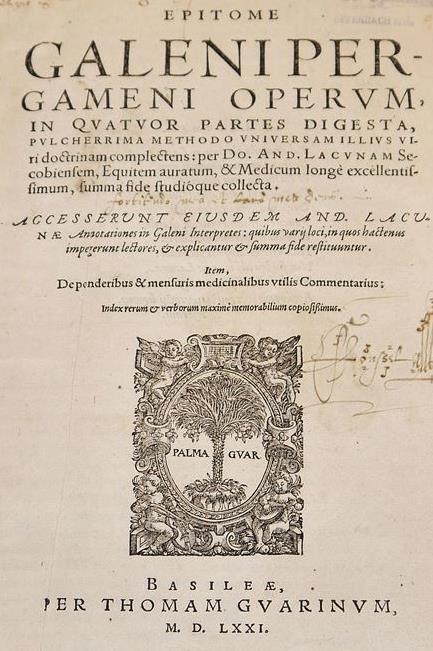 EPITOME
GALENI PER-
GAMENI OPERVM,
IN QVATVOR PARTES DIGESTA,
PVLCHERRIMA METHODO VNIVERSAM ILLIVS VI-
ri doctrinam complectens: per DO. AND. LACVNAM Se-
cobiensem, Equitem auratum, & Medicum longè excellentis-
simum, summa fide studióque collecta.
ACCESSERVNT EIVSDEM AND. LACV-
NÆ Annotationes in Galeni Interpretes: quibus varij loci, in quos hactenus
impegerunt lectores, & explicantur & summa fide restituuntur.
Item,
De ponderibus & mensuris medicinalibus vtilis Commentarius;
Index rerum & verborum maximè memorabilium copiosissimus.
PALMA GVAR
BASILEÆ,
PER THOMAM GVARINVM,
M. D. LXXI.